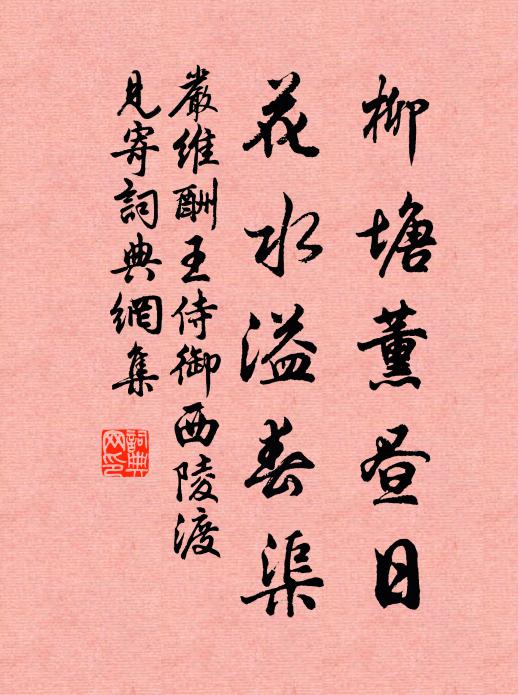 柳塘薰昼日
花水溢春渠
嚴維酬王侍御西陵渡
見寄詞典網集
詞典
网印